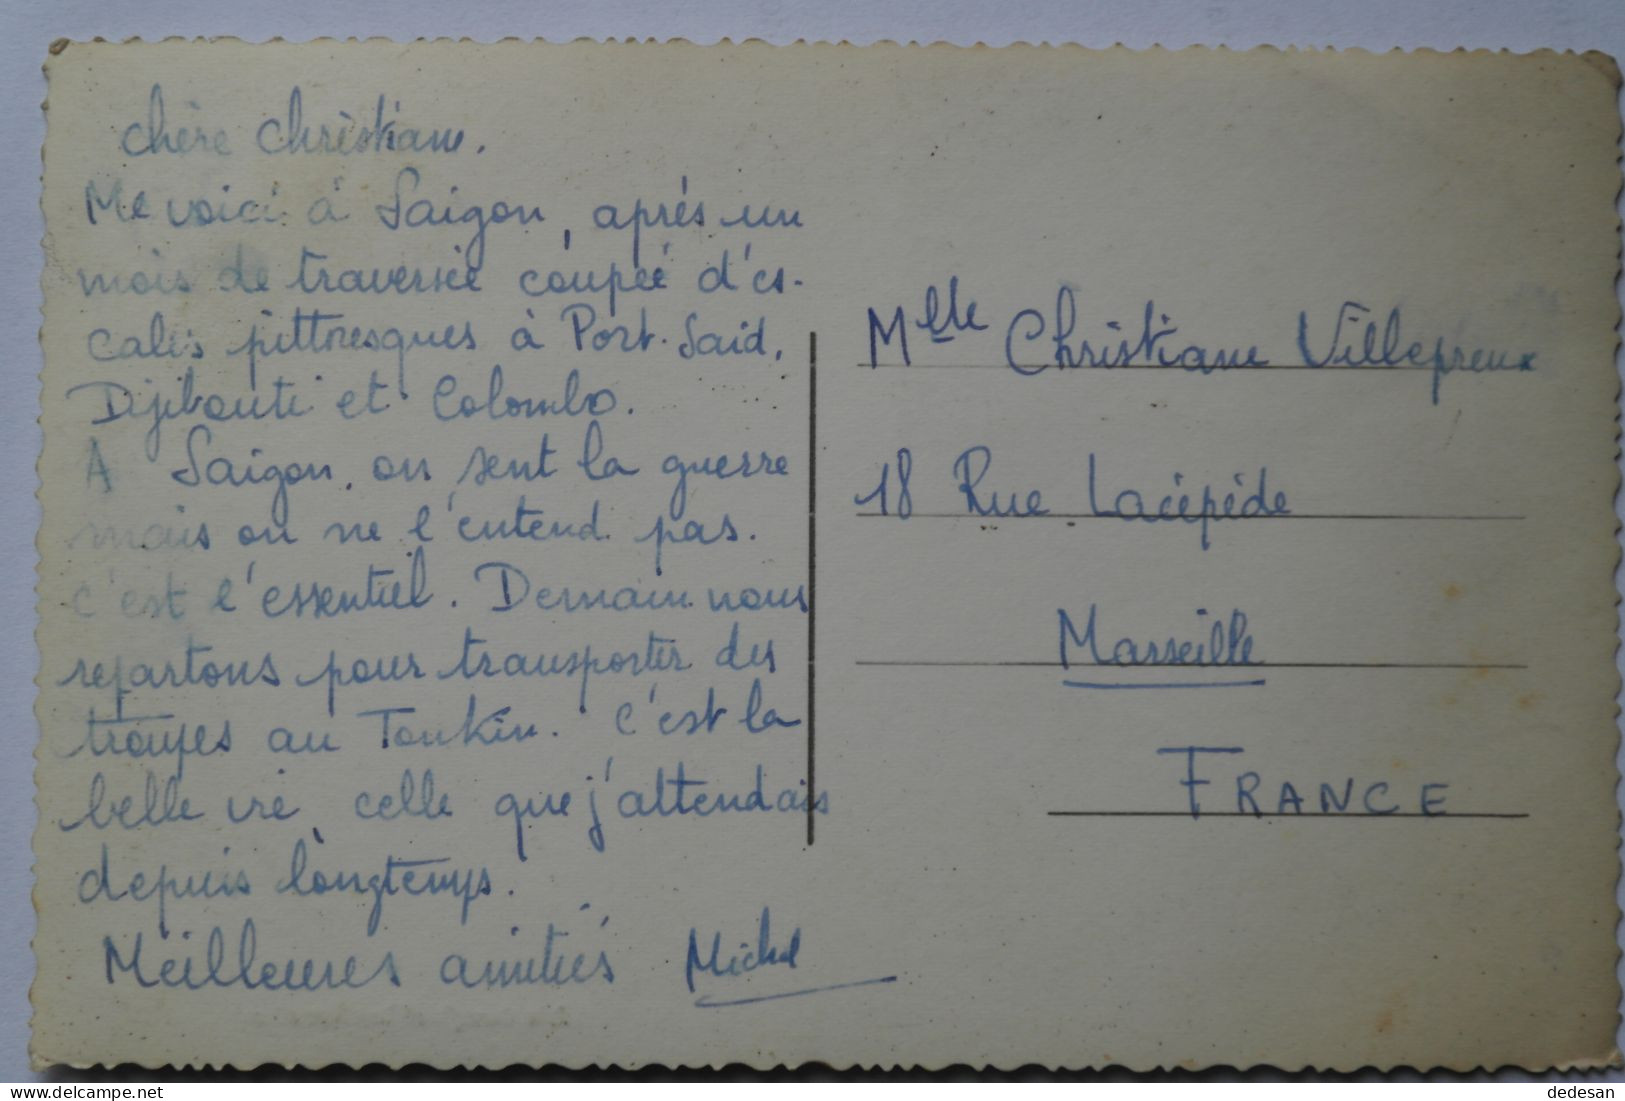 Chère Christiane.
Me voici à Saigon, après un
mois de traversée coupée d'es-
cales pittoresques à Port-Saïd,
Djibouti et Colombo.
A Saigon, on sent la guerre
mais on ne l'entend pas.
C'est l'essentiel. Demain nous
repartons pour transporter des
troupes au Tonkin. C'est la
belle vie, celle que j'attendais
depuis longtemps.
Meilleures amitiés Michel
Mlle Christiane Villepreux
18 Rue Lacépède
Marseille
FRANCE
dedesan